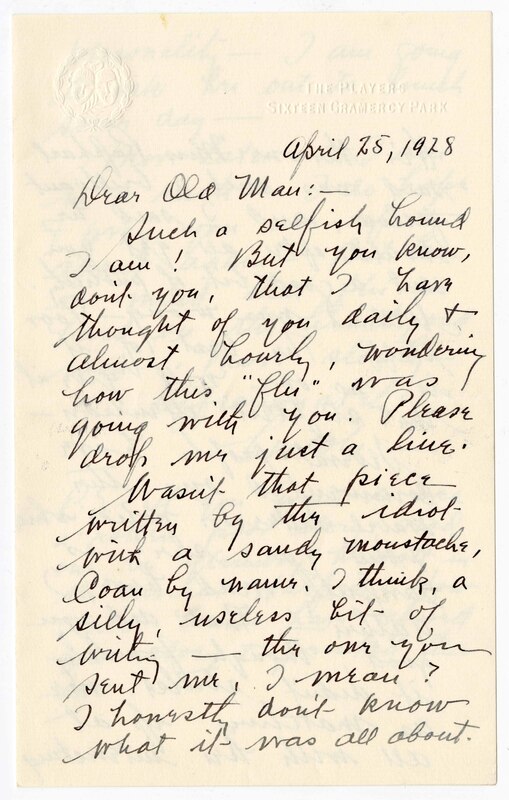 THE PLAYERS
SIXTEEN GRAMERCY PARK
April 25, 1928
Dear Old Man:—
Such a selfish hound
I am! But you know,
don't you, that I have
thought of you daily &
almost hourly, wondering
how this "flu" was
going with you. Please
drop me just a line.
Wasn't that piece
written by the idiot
with a sandy moustache,
Coan by name. I think, a
silly, useless bit of
writing — the one you
sent me, I mean?
I honestly don't know
what it was all about.